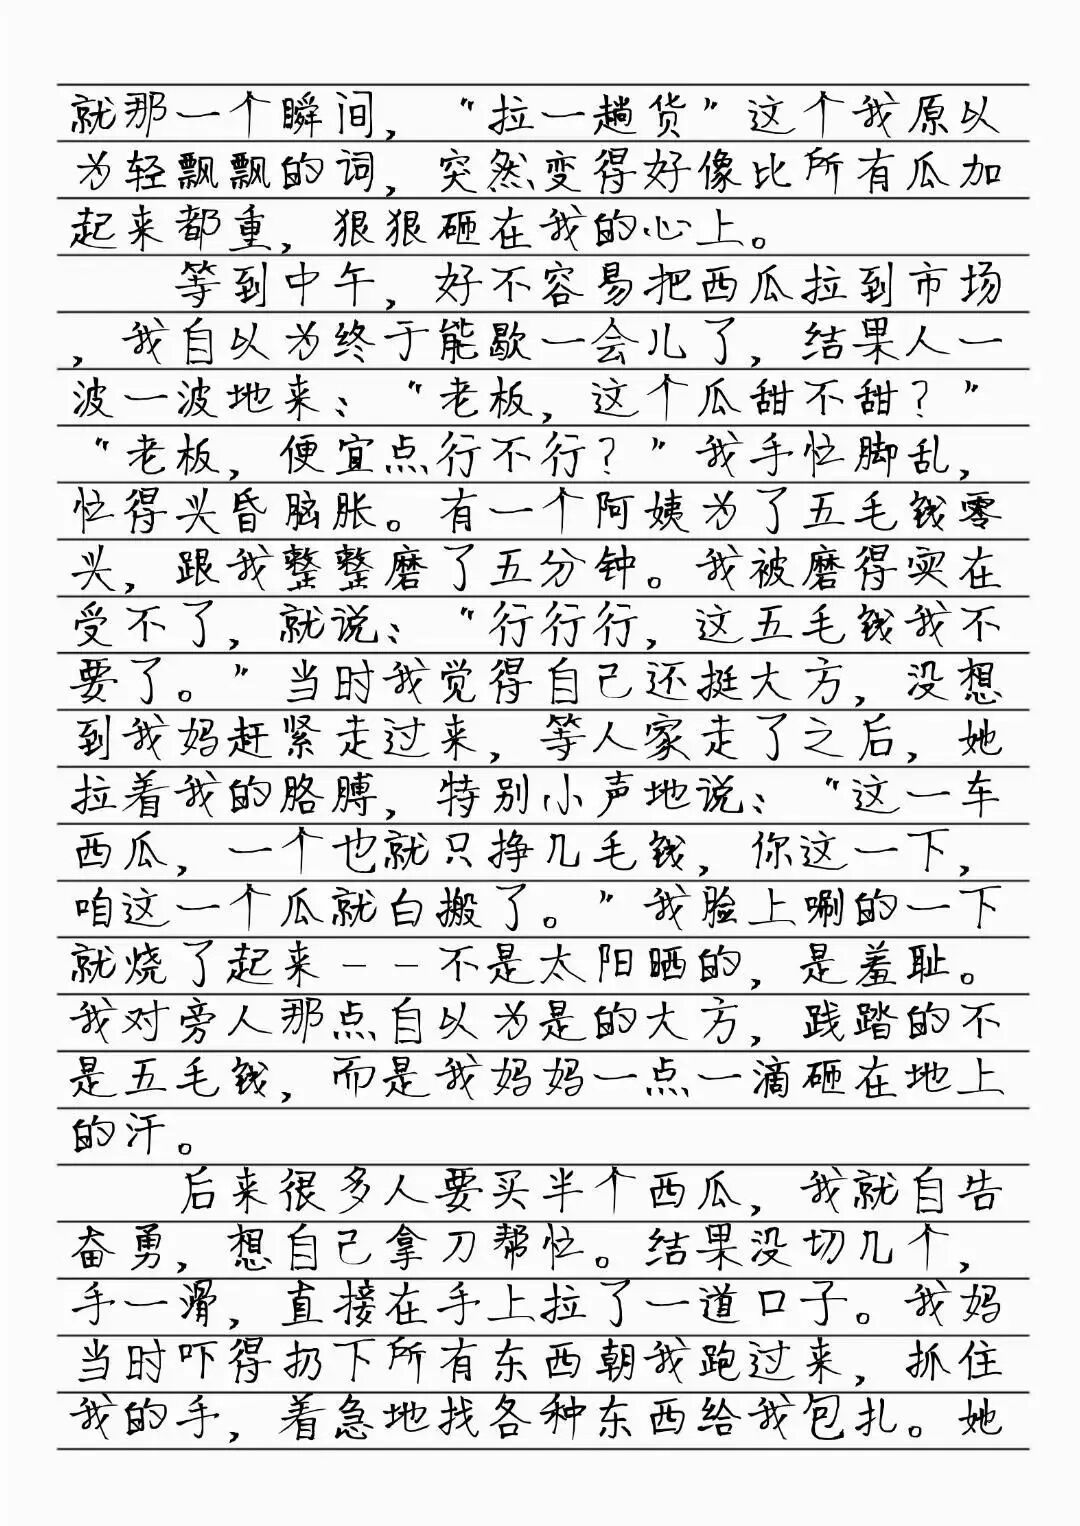 就那一个瞬间，“拉一趟货”这个我原以
为轻飘飘的词，突然变得好像比所有瓜加
起来都重，狠狠砸在我的心上。
等到中午，好不容易把西瓜拉到市场
，我自以为终于能歇一会儿了，结果人一
波一波地来：“老板，这个瓜甜不甜？”
“老板，便宜点行不行？”我手忙脚乱，
忙得头昏脑胀。有一个阿姨为了五毛钱零
头，跟我整整磨了五分钟。我被磨得实在
受不了，就说：“行行行，这五毛钱我不
要了。”当时我觉得自己还挺大方，没想
到我妈赶紧走过来，等人家走了之后，她
拉着我的胳膊，特别小声地说：“这一车
西瓜，一个也就只挣几毛钱，你这一下，
咱这一个瓜就白搬了。”我脸上唰的一下
就烧了起来--不是太阳晒的，是羞耻。
我对旁人那点自以为是的大方，践踏的不
是五毛钱，而是我妈妈一点一滴砸在地上
的汗。
后来很多人要买半个西瓜，我就自告
奋勇，想自己拿刀帮忙。结果没切几个，
手一滑，直接在手上拉了一道口子。我妈
当时吓得扔下所有东西朝我跑过来，抓住
我的手，着急地找各种东西给我包扎。她